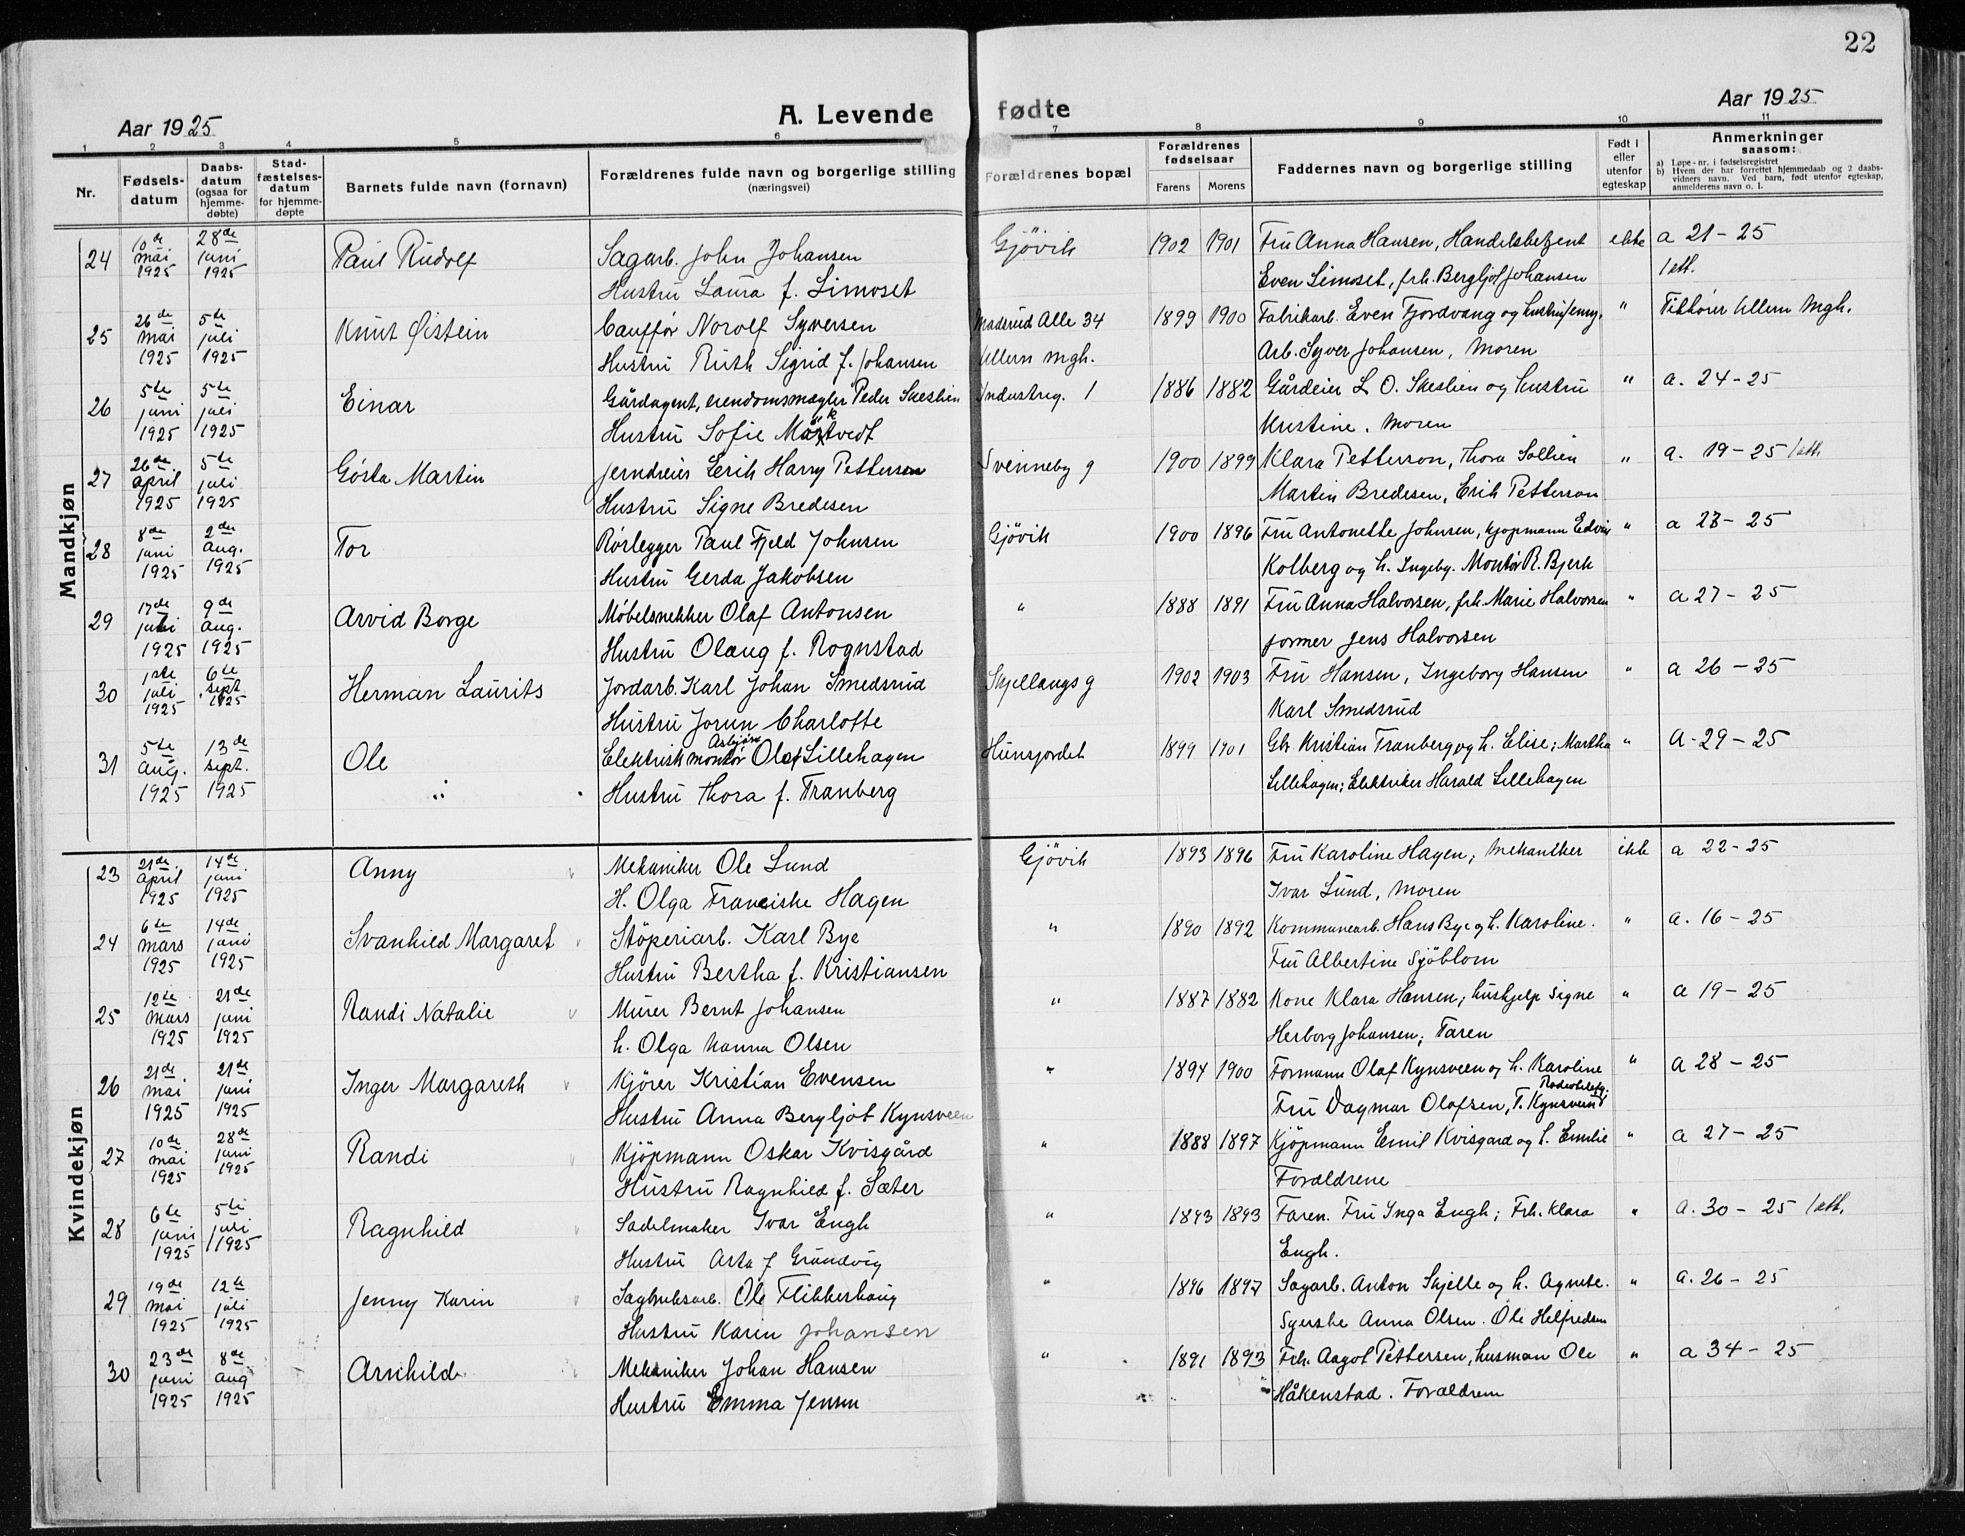 22
Aar 1925 A. Levende fødte Aar 1925
1 2 3 4 5 6 7 8 9 10 11
Nr. Fødselsdatum Daabsdatum (ogsaa for hjemmedøbte) Stadfæstelsesdatum for hjemmedøpte Barnets fulde navn (fornavn) Forældrenes fulde navn og borgerlige stilling (næringsvei) Forældrenes bopæl Forældrenes fødselsaar Farens Morens Faddernes navn og borgerlige stilling Født i eller utenfor egteskap Anmerkninger saasom:
a) Løpe-nr. i fødselsregistret
b) Hvem der har forrettet hjemmedaab og 2 daabsvidners navn. Ved barn, født utenfor egteskap, anmelderens navn o. l.
Mandkjøn
24 10de mai 1925 28de juni 1925 Paul Rudolf Sagarb. John Johansen Gjövik 1902 1901 Fru Anna Hansen, Handelsbetjent ekte a 21-25
Hustru Laura f. Simoset Even Simoset, frk. Bergljot Johansen 1 att.
25 26de mai 1925 5te juli 1925 Knut Øistein Cauffør Norolf Syversen Madserud Alle 34 1899 1900 Fabrikarb. Even Fjordvang og hustru Jenny, " Tilhører Ullern Mgh.
Hustru Ruth Sigrid f. Johansen Ullern mgh. Arb. Syver Johansen, Moren
26 5te juni 1925 5te juli 1925 Einar Gårdagent, eiendomsmægler Peder Skeslien Industrig. 1 1886 1882 Gårdeier L. O. Skeslien og hustru " a. 24-25
Hustru Sofie Kristine. Moren
27 26de april 1925 5te juli 1925 Gösta Martin Jerndreier Erik Harry Petterson Svenneby g 1900 1899 Klara Petterson, Thora Sollien " a. 19-25 1 att.
Hustru Signe Bredesen Martin Bredesen, Erik Petterson
28 8de juni 1925 2den Aug. 1925 Tor Rörlegger Paul Fjeld Johnsen Gjövik 1900 1896 Fru Antonette Johnsen, Kjøpmann Edvin " a 23-25
Hustru Gerda Jakobsen Kolberg og h. Ingeby. Montør R. Bjerk
29 17de juli 1925 9de Aug. 1925 Arvid Borge Møbelsnekker Olaf Antonsen " 1888 1891 Fru Anna Halvorsen, frk. Marie Halvorsen " a 27-25
Hustru Olaug f. Rognstad former Jens Halvorsen
30 1ste juli 1925 6te sept 1925 Herman Laurits Jordarb. Karl Johan Smedsrud Skjellangs g 1902 1903 Fru Hansen, Ingeborg Hansen " a 26-25
Hustru Jorun Charlotte Karl Smedsrud
31 5te Aug. 1925 13de sept. 1925 Ole Elektrisk montör Asbjørn Olaf Lillehagen Hunsjordet 1899 1901 Gbr. Kristian Tranberg og h. Elise; Martha " A-29-25
Hustru Thora f. Tranberg Lillehagen; Elektriker Harald Lillehagen
Kvindekjøn
23 21de april 1925 14de juni 1925 Anny Mekaniker Ole Lund Gjövik 1893 1896 Fru Karoline Hagen; Mekaniker ekte a 22-25
H. Olga Franciske Hagen Ivar Lund, Moren
24 6te mars 1925 14de juni 1925 Svanhild Margaret Støperiarb. Karl Bye " 1890 1892 Kommunearb. Hans Bye og h. Karoline. " a. 16-25
Hustru Bertha f. Kristiansen Fru Albertine Sjöblom
25 12te mars 1925 21de juni 1925 Randi Natalie Murer Bernt Johansen " 1887 1882 Kone Klara Hansen; hushjelp Signe " a 19-25
h. Olga Nanna Olsen Herborg Johansen; Faren
26 21de mai 1925 21de juni 1925 Inger Margareth Kjörer Kristian Evensen " 1894 1900 Formann Olaf Kynsveen og h. Karoline " a 28-25
Hustru Anna Bergljot Kynsveen Fru Dagmar Olafsen, T. Kynsveen
27 10de mai 1925 28de juni 1925 Randi Kjöpmann Oskar Kvisgård " 1888 1897 Kjöpmann Emil Kvisgard og h. Emilie " a 27-25
Hustru Ragnhild f. Sæter Forældrene
28 6te juni 1925 5te juli 1925 Ragnhild Sadelmaker Ivar Engh " 1893 1893 Faren. Fru Inga Engh; Frk. Klara " a. 30-25 1 att.
Hustru Asta f Grundvig Engh.
29 19de mai 1925 12te juli 1925 Jenny Karin Sagbruksarb. Ole Flikkerhaug " 1896 1897 Sagarb. Anton Skjelle og h. Agnete. " a. 26-25
Hustru Karen Johansen Syerske Anna Olsen. Ole Helfredsen
30 23de juni 1925 8de aug 1925 Arnhild Mekaniker Johan Hansen " 1891 1893 Frk. Aagot Pettersen, husman Ole " a 34-25
Hustru Emma Jensen Håkenstad. Forældrene